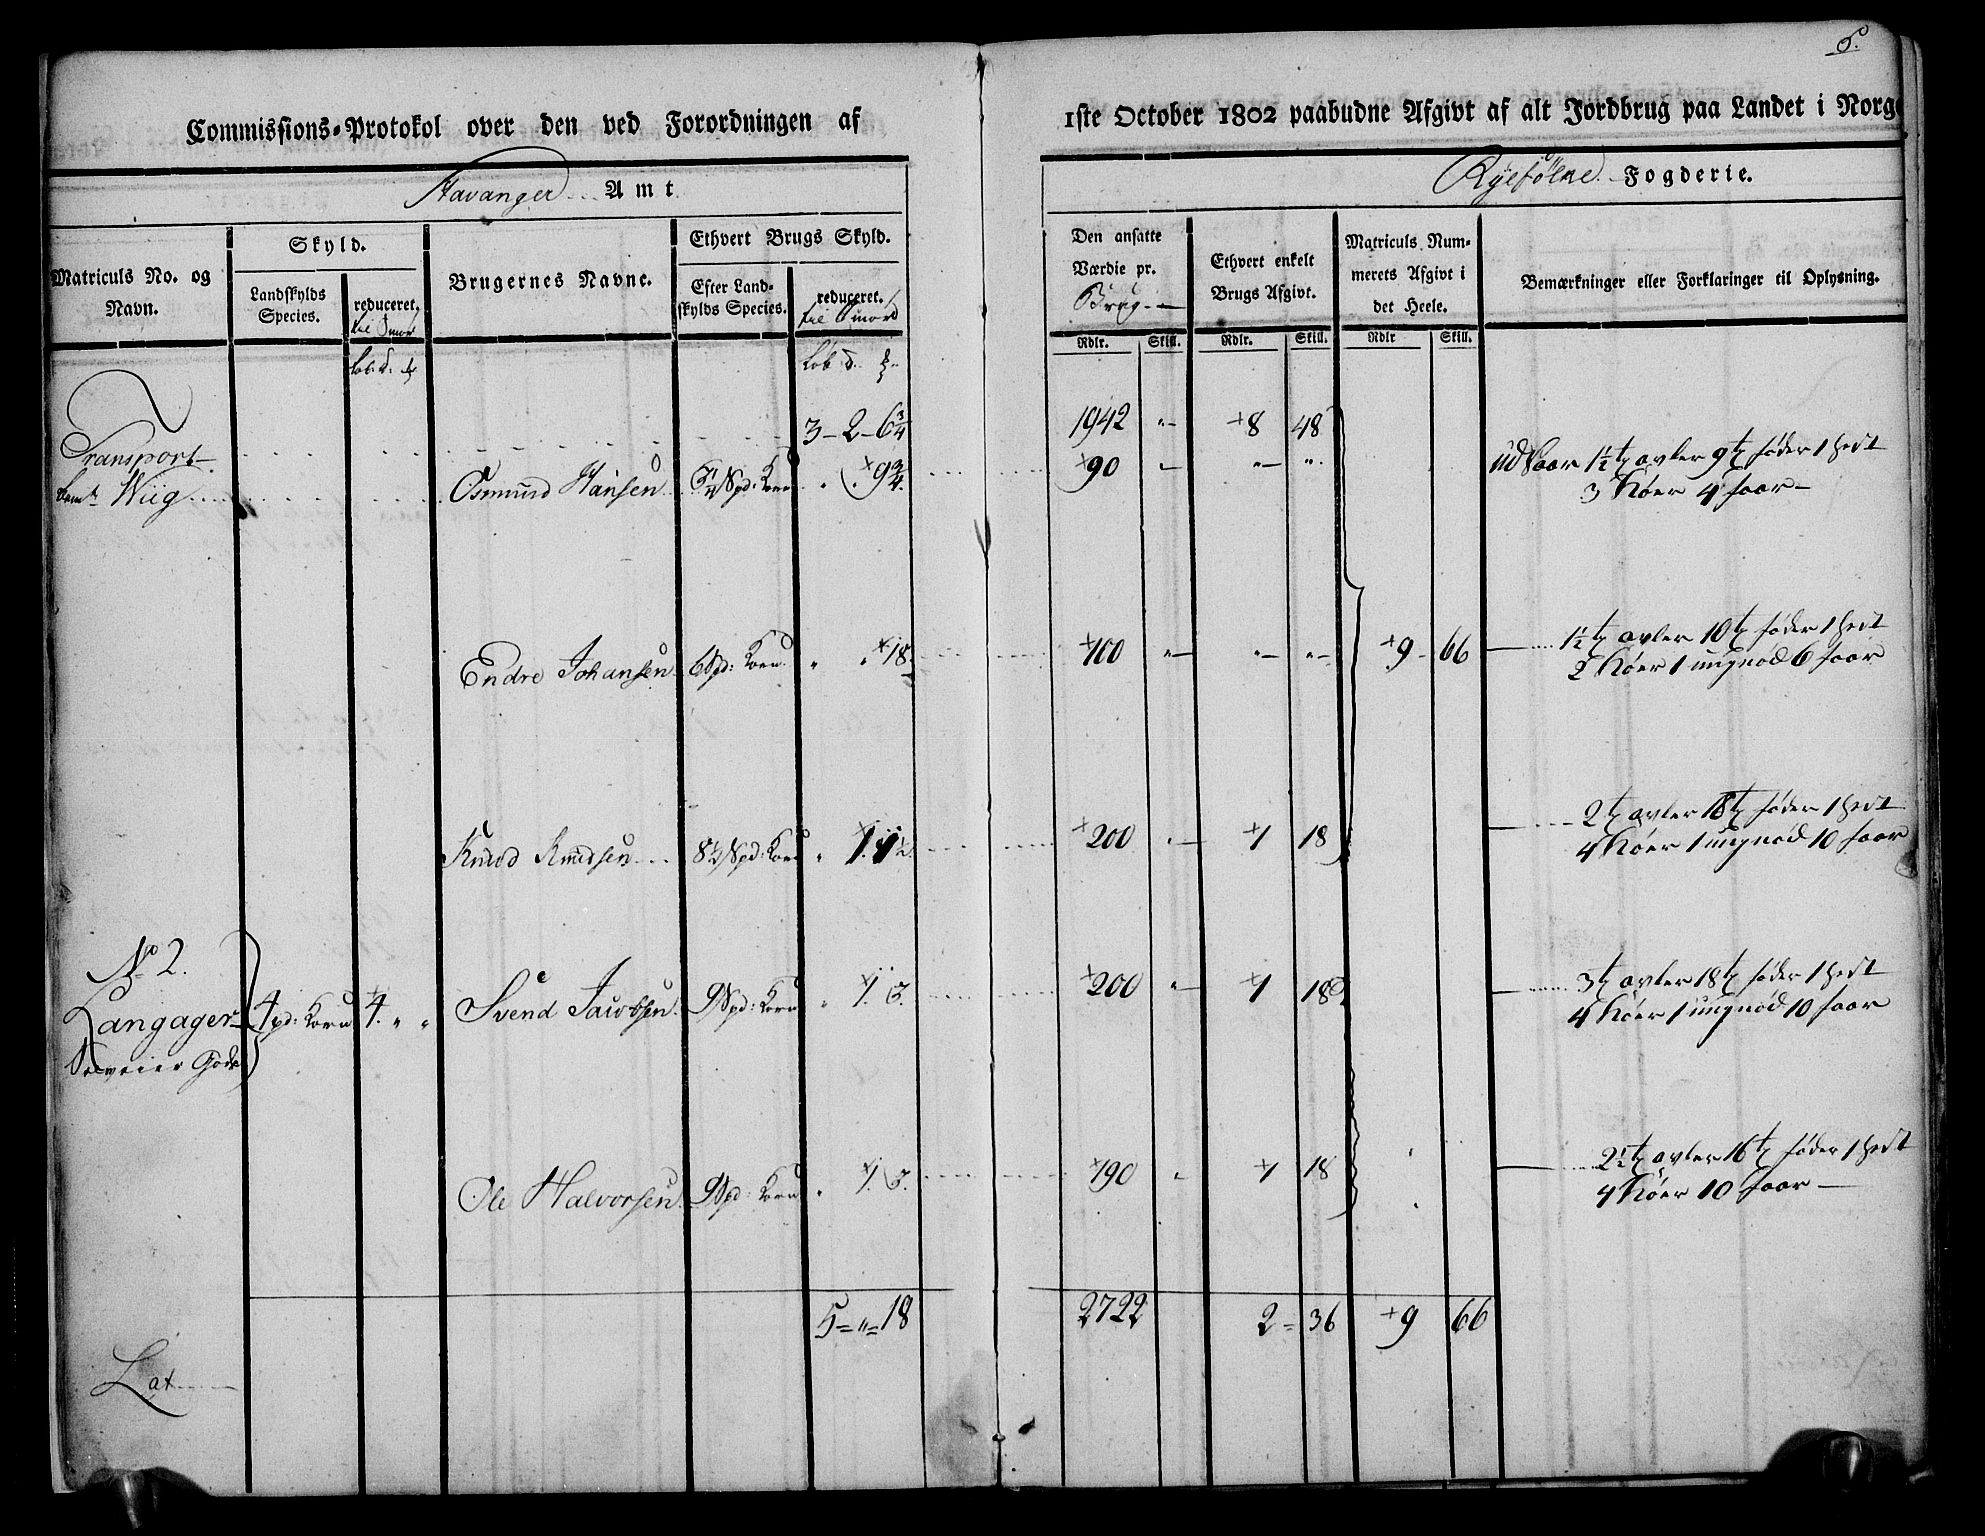 5.
Commissions-Protokol over den ved Forordningen af 1ste October 1802 paabudne Afgivt af alt Jordbrug paa Landet i Norge
Stavanger Amt
Ryefølke Fogderie.
Matriculs No. og Navn.
Skyld.
Landskylds Species.
reduceret.
til Smør
Brugernes Navne.
Ethvert Brugs Skyld.
Efter Landskylds Species.
reduceret.
til Smør
Den ansatte Værdie pr. Brug
Ethvert enkelt Brugs Afgivt.
Matriculs Nummerets Afgivt i det Heele.
Bemærkninger eller Forklaringer til Oplysning.
Rdlr. Skill. Rdlr. Skill. Rdlr Skill.
Transport 3-2-6 3/4 1942 " +8 48
Wiig Osmund Hansen Spd: Korn +9 3/4 +90 Saar 1 1/2 t avler 9 t føder 1 hest
3 Køer 4 faar
Endre Johansen 6 Spd: Korn " " +18 +100 " " +9 66 1 1/2 t avler 10 t føder 1 hest
2 Køer 1 ungnød 6 faar
Knud Knudsen 8 1/2 Spd: Korn " +200 +1 18 2 t avler 18 t føder 1 hest
4 Køer 1 ungnød 10 faar
No 2.
Langager 4 pd: Korn 4. " " Svend Jacobsen 9 Spd: Korn " 1. 3. +200 " +1 18 3 t avler 18 t føder 1 hest
4 Køer 1 ungnød 10 faar
Ole Halvorsen 9 Spd: Korn " 1. 3. +190 +1 18 2 1/2 t avler 16 t føder 1 hest
4 Køer 10 faar
5 = " = 18 2722 2 = 36 +9 66
Lat